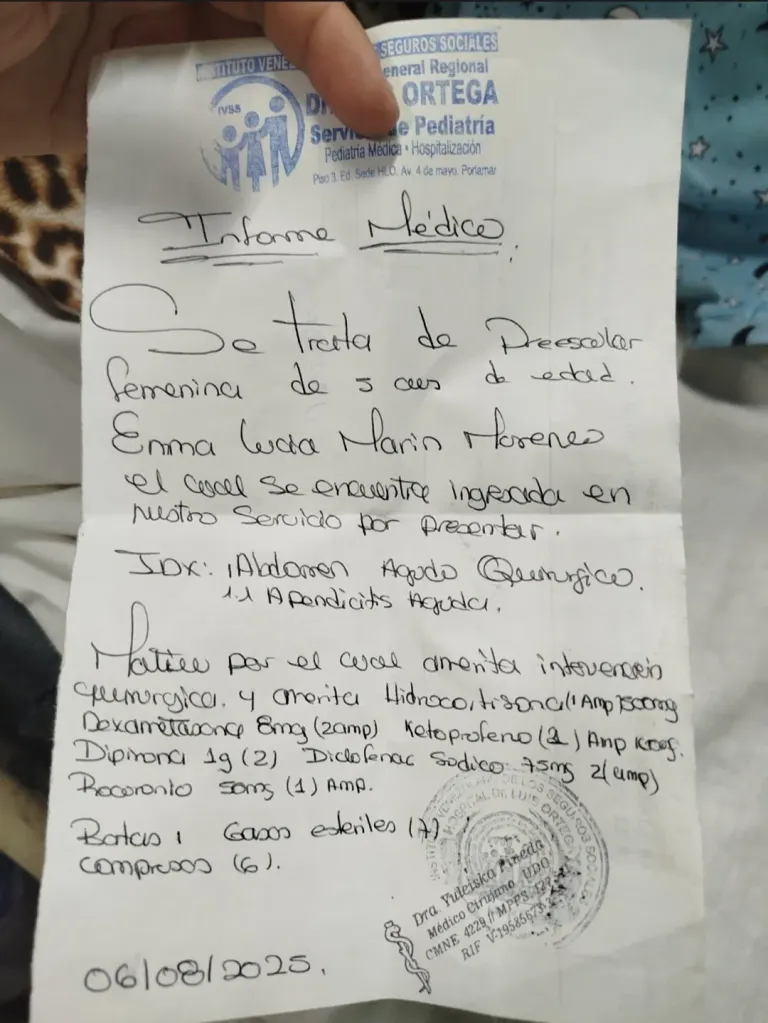 INSTITUTO VENE SEGUROS SOCIALES
IVSS
eneral Regional
ORTEGA
de Pediatría
Pediatría Médica • Hospitalización
Piso 3. Ed. Sede HLO. Av. 4 de mayo. Porlamar
Informe Médico.
Se trata de Preescolar
femenina de años de edad.
Enma Lucia Marin Moreno
el cual se encuentra ingresada en
nuestro Servicio por presentar.
IDX: 1 Abdomen Agudo Quirurgico.
1.1 Apendicitis Aguda.
Motivo por el cual amerita intervencion
quirurgica. y amerita Hidrocortisona (1 Amp) 500mg
Dexametasona 8mg (2amp) Ketoprofeno Amp
Dipirona 1g (2) Diclofenac Sodico 75mg 2(amp)
Rocoronio 50mg (1) Amp.
Botas 1 Gasas esteriles (7)
compresas (6).
DE LOS SEGUROS SOCIALES
HOSPITAL DR LUIS ORTEGA
Dra. Yuleiska Pineda
Médico Cirujano UDO
CMNE 4229 // MPPS
RIF
06/08/2025.